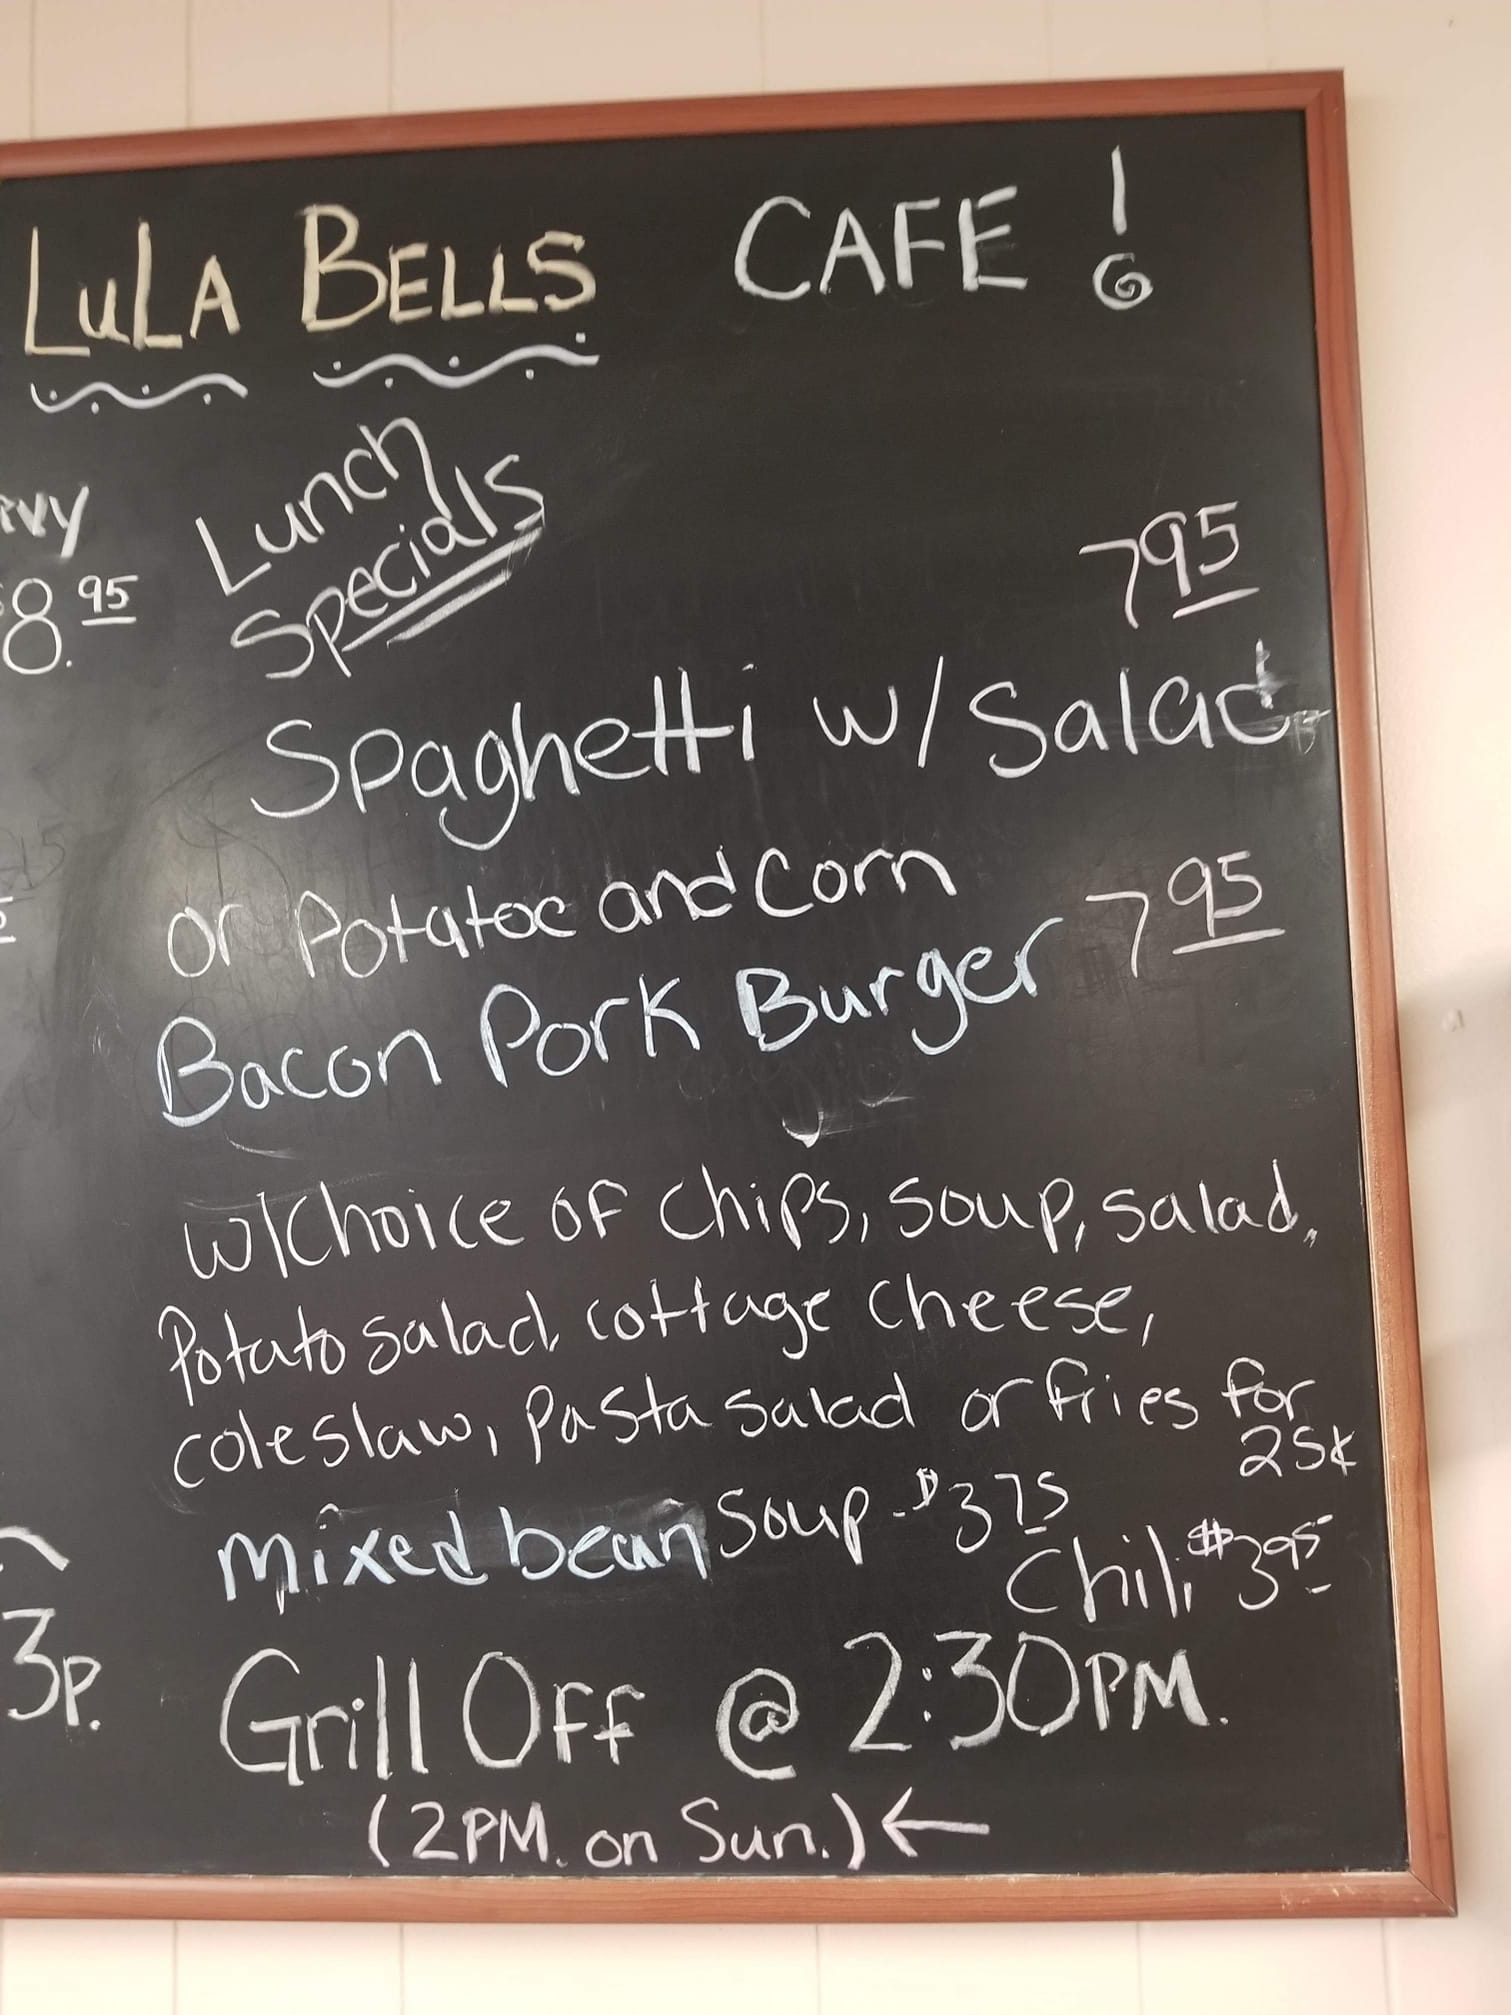 LuLA BELLS CAFE !
8.95
Lunch
Specials
7 95
Spaghetti w/ Salad
or Potatoe and Corn
Bacon Pork Burger 7 95
w/Choice of Chips, soup, salad,
Potato salad, cottage cheese,
coleslaw, pasta salad or fries for
25¢
mixed bean soup - $3 75
Chili $3 95
3p.
Grill Off @ 2:30PM.
(2PM. on Sun.) ←